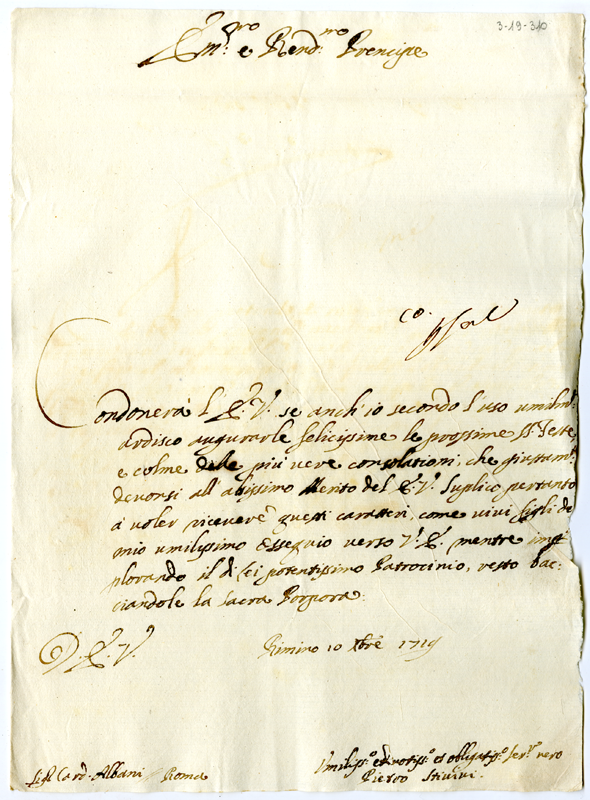 3-19-310
Em.mo e Rend.mo Prencipe
co.
Condonerà l'E.V. se anch'io secondo l'uso umilm.te
ardisco augurarle felicissime le prossime SS. Feste,
e colme delle più vere consolationi, che giustam.te
devonsi all'altissimo Merito del E.V. Suplico pertanto
à voler ricevere questi caratteri, come vivi figli del
mio umilissimo Osseguio verso V.E. mentre im-
plorando il di Lei potentissimo Patrocinio, resto bac:
ciandole la Sacra Porpora.
D. E. V.
Rimino 10 Xbre 1719
Sig. Card. Albani Roma
Umiliss.o e divotiss.o et obligatiss.o Ser.re vero
Pietro